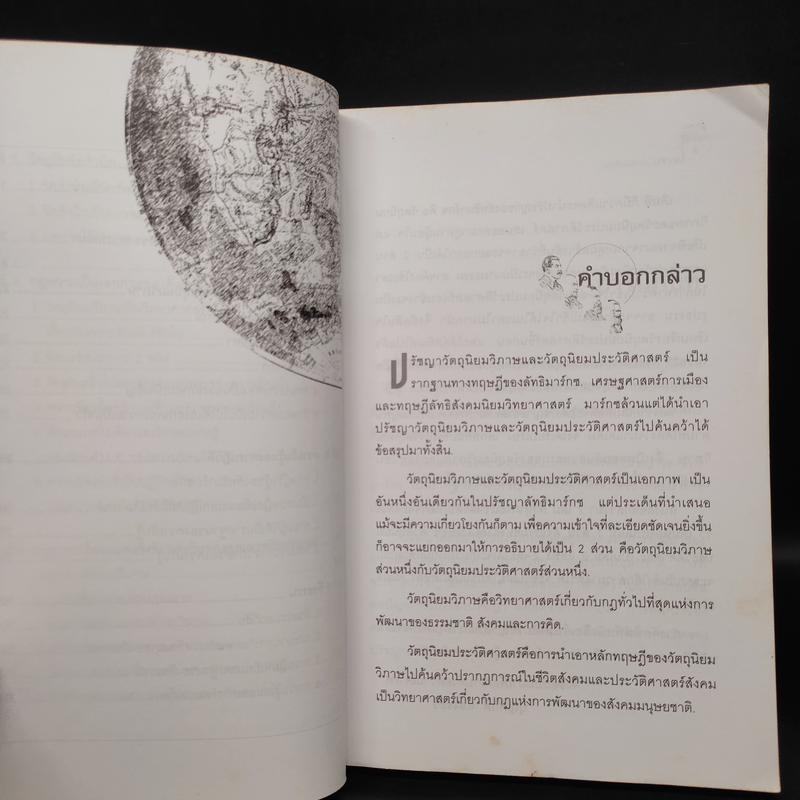 คำบอกกล่าว
ปรัชญาวัตถุนิยมวิภาษและวัตถุนิยมประวัติศาสตร์ เป็น
รากฐานทางทฤษฎีของลัทธิมาร์กซ. เศรษฐศาสตร์การเมือง
และทฤษฎีลัทธิสังคมนิยมวิทยาศาสตร์ มาร์กซล้วนแต่ได้นำเอา
ปรัชญาวัตถุนิยมวิภาษและวัตถุนิยมประวัติศาสตร์ไปค้นคว้าได้
ข้อสรุปมาทั้งสิ้น.
วัตถุนิยมวิภาษและวัตถุนิยมประวัติศาสตร์เป็นเอกภาพ เป็น
อันหนึ่งอันเดียวกันในปรัชญาลัทธิมาร์กซ แต่ประเด็นที่นำเสนอ
แม้จะมีความเกี่ยวโยงกันก็ตาม เพื่อความเข้าใจที่ละเอียดชัดเจนยิ่งขึ้น
ก็อาจจะแยกออกมาให้การอธิบายได้เป็น 2 ส่วน คือวัตถุนิยมวิภาษ
ส่วนหนึ่งกับวัตถุนิยมประวัติศาสตร์ส่วนหนึ่ง.
วัตถุนิยมวิภาษคือวิทยาศาสตร์เกี่ยวกับกฎทั่วไปที่สุดแห่งการ
พัฒนาของธรรมชาติ สังคมและการคิด.
วัตถุนิยมประวัติศาสตร์คือการนำเอาหลักทฤษฎีของวัตถุนิยม
วิภาษไปค้นคว้าปรากฏการณ์ในชีวิตสังคมและประวัติศาสตร์สังคม
เป็นวิทยาศาสตร์เกี่ยวกับกฎแห่งการพัฒนาของสังคมมนุษยชาติ.